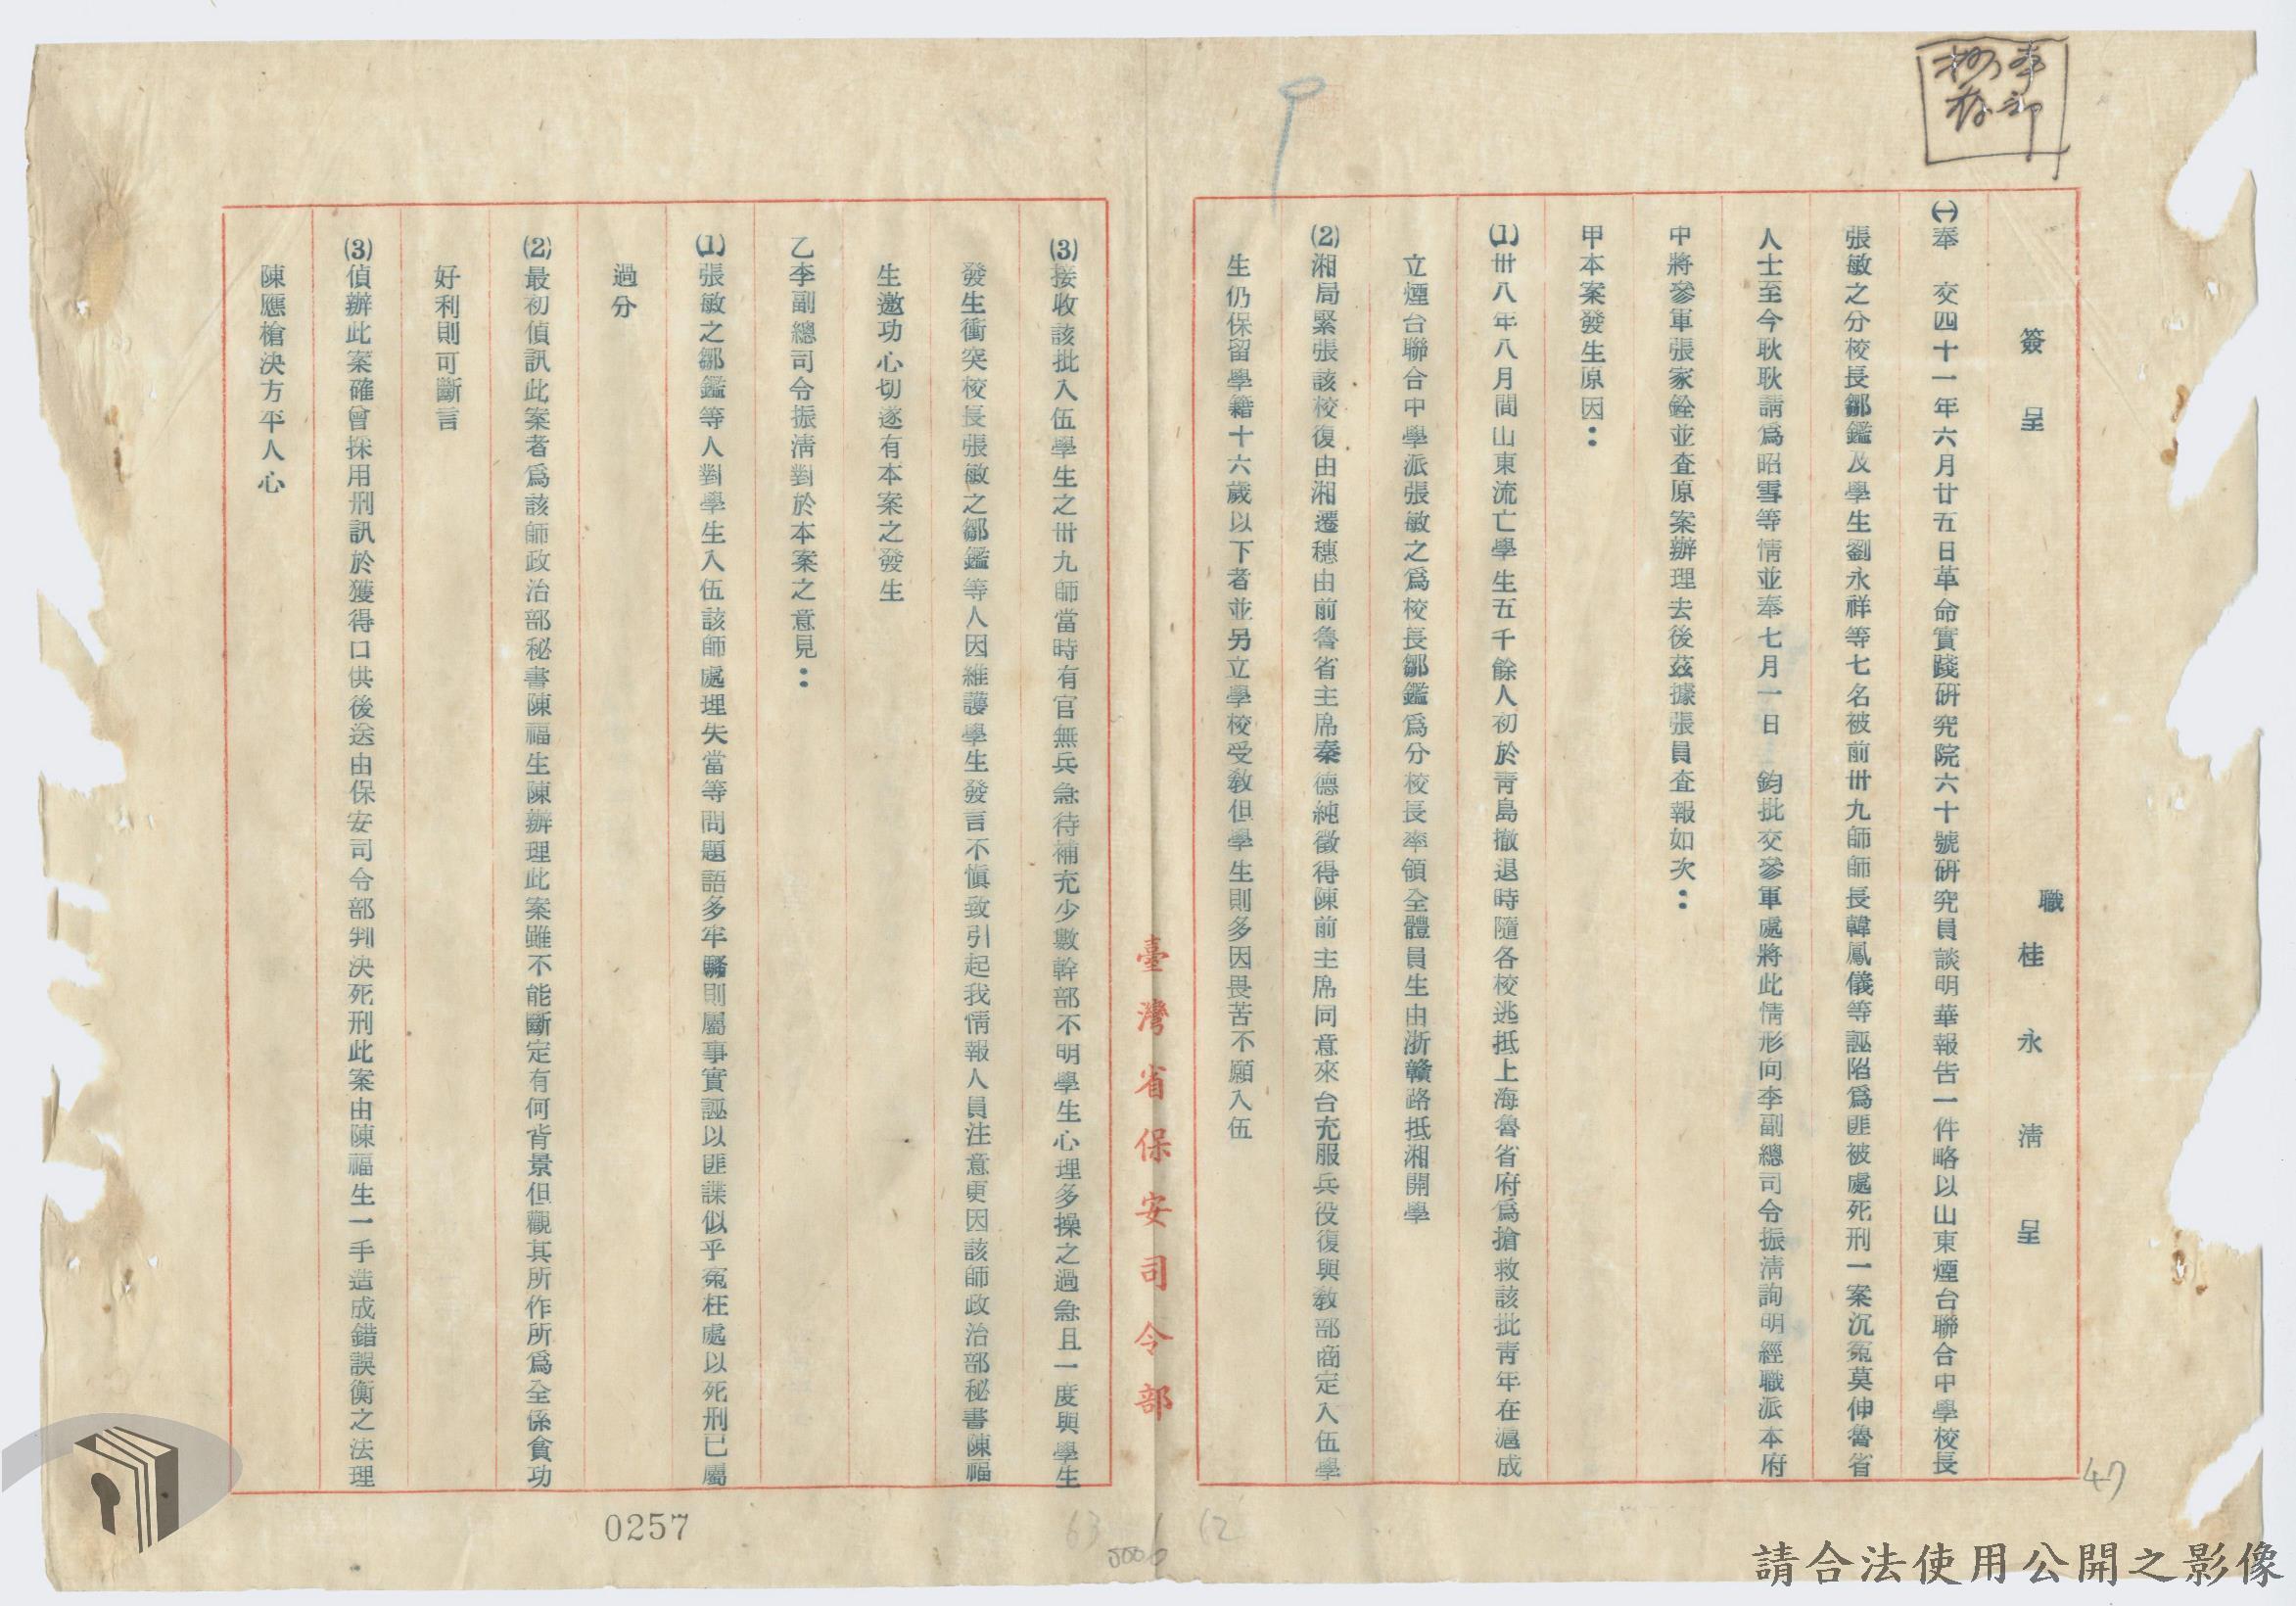 簽呈
職桂永淸呈
㈠奉　交四十一年六月廿五日革命實踐硏究院六十號硏究員談明華報吿一件略以山東煙台聯合中學校長
張敏之分校長鄒鑑及學生劉永祥等七名被前卅九師師長韓鳳儀等誣陷爲匪被處死刑一案沉寃莫伸魯省
人士至今耿耿請爲昭雪等情並奉七月一日　鈞批交參軍處將此情形向李副總司令振淸詢明經職派本府
中將參軍張家銓並査原案辦理去後茲據張員査報如次：
甲本案發生原因：
⑴卅八年八月間山東流亡學生五千餘人初於靑島撤退時隨各校逃抵上海魯省府爲搶救該批靑年在滬成
立煙台聯合中學派張敏之爲校長鄒鑑爲分校長率領全體員生由浙贛路抵湘開學
⑵湘局緊張該校復由湘遷穗由前魯省主席秦德純徵得陳前主席同意來台充服兵役復與敎部商定入伍學
生仍保留學籍十六歲以下者並另立學校受敎但學生則多因畏苦不願入伍
臺灣省保安司令部
⑶接收該批入伍學生之卅九師當時有官無兵急待補充少數幹部不明學生心理多操之過急且一度與學生
發生衝突校長張敏之鄒鑑等人因維護學生發言不愼致引起我情報人員注意更因該師政治部秘書陳福
生邀功心切遂有本案之發生
乙李副總司令振淸對於本案之意見：
⑴張敏之鄒鑑等人對學生入伍該師處理失當等問題語多牢騷則屬事實誣以匪諜似乎寃枉處以死刑已屬
過分
⑵最初偵訊此案者爲該師政治部秘書陳福生陳辦理此案雖不能斷定有何背景但觀其所作所爲全係貪功
好利則可斷言
⑶偵辦此案確曾採用刑訊於獲得口供後送由保安司令部判決死刑此案由陳福生一手造成錯誤衡之法理
陳應槍決方平人心
0257
47
63
12
請合法使用公開之影像